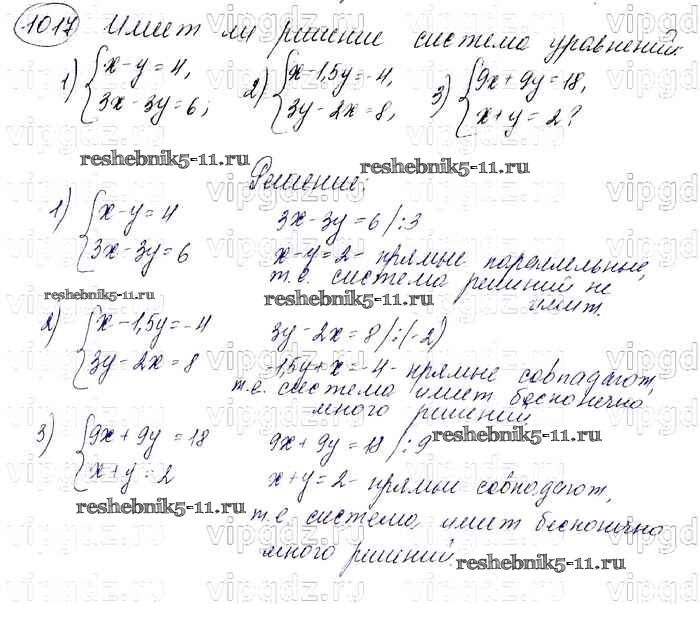 1017 Имеет ли решение система уравнений:
1) { x - y = 4, 3x - 3y = 6; 2) { x - 1,5y = -4, 3y - 2x = 8, 3) { 9x + 9y = 18, x + y = 2?
reshebnik5-11.ru reshebnik5-11.ru
Решение:
1) { x - y = 4 3x - 3y = 6
3x - 3y = 6 /:3
x - y = 2 - прямые параллельные,
т.е. система решений не
имеет.
reshebnik5-11.ru reshebnik5-11.ru
2) { x - 1,5y = -4 3y - 2x = 8
3y - 2x = 8 /:(-2)
-1,5y + x = -4 - прямые совпадают,
т.е. система имеет бесконечно
много решений.
reshebnik5-11.ru
3) { 9x + 9y = 18 x + y = 2
9x + 9y = 18 /:9
x + y = 2 - прямые совпадают,
т.е. система, имеет бесконечно
много решений.
reshebnik5-11.ru reshebnik5-11.ru
vipgdz.ru